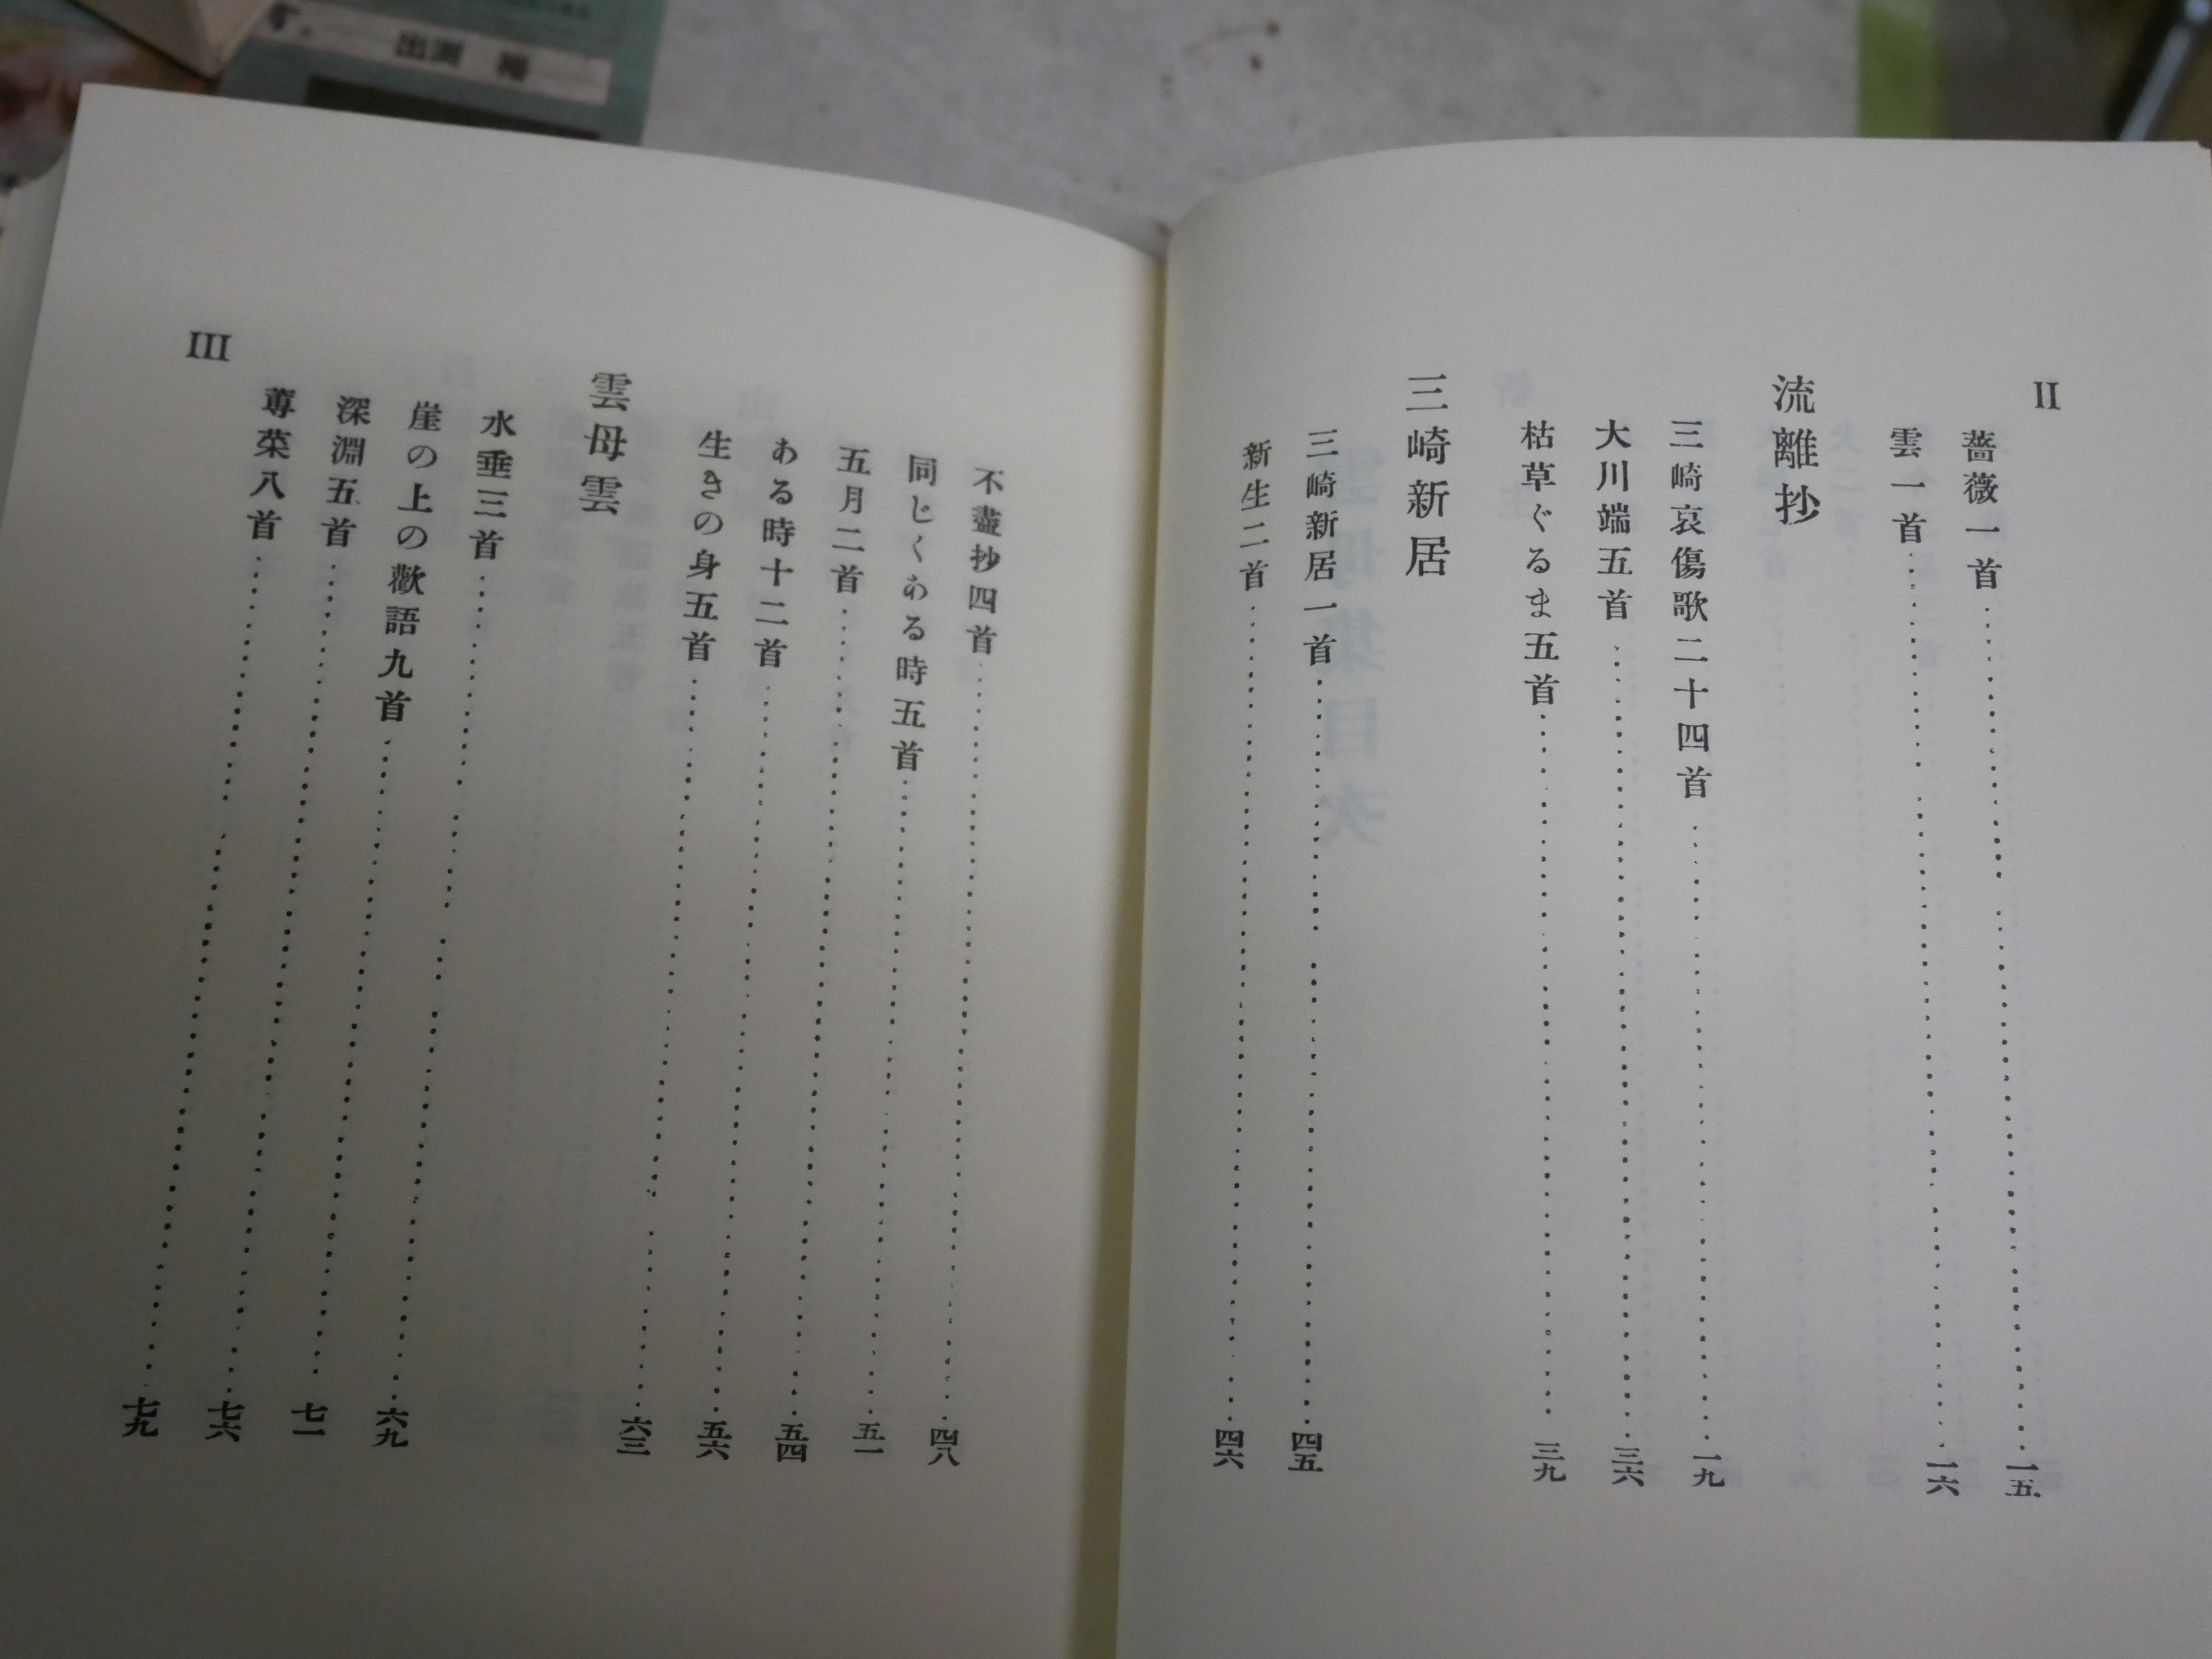 薔薇一首……一五
雲一首……一六
II
流離抄
三崎哀傷歌二十四首……一九
大川端五首……三六
枯草ぐるま五首……三九
三崎新居
三崎新居一首……四五
新生二首……四六
不盡抄四首……四八
同じくある時五首……五一
五月二首……五四
ある時十二首……五六
生きの身五首……六三
雲母雲
水垂三首……六九
崖の上の歡語九首……七一
深淵五首……七六
蓴菜八首……七九
III
出淵